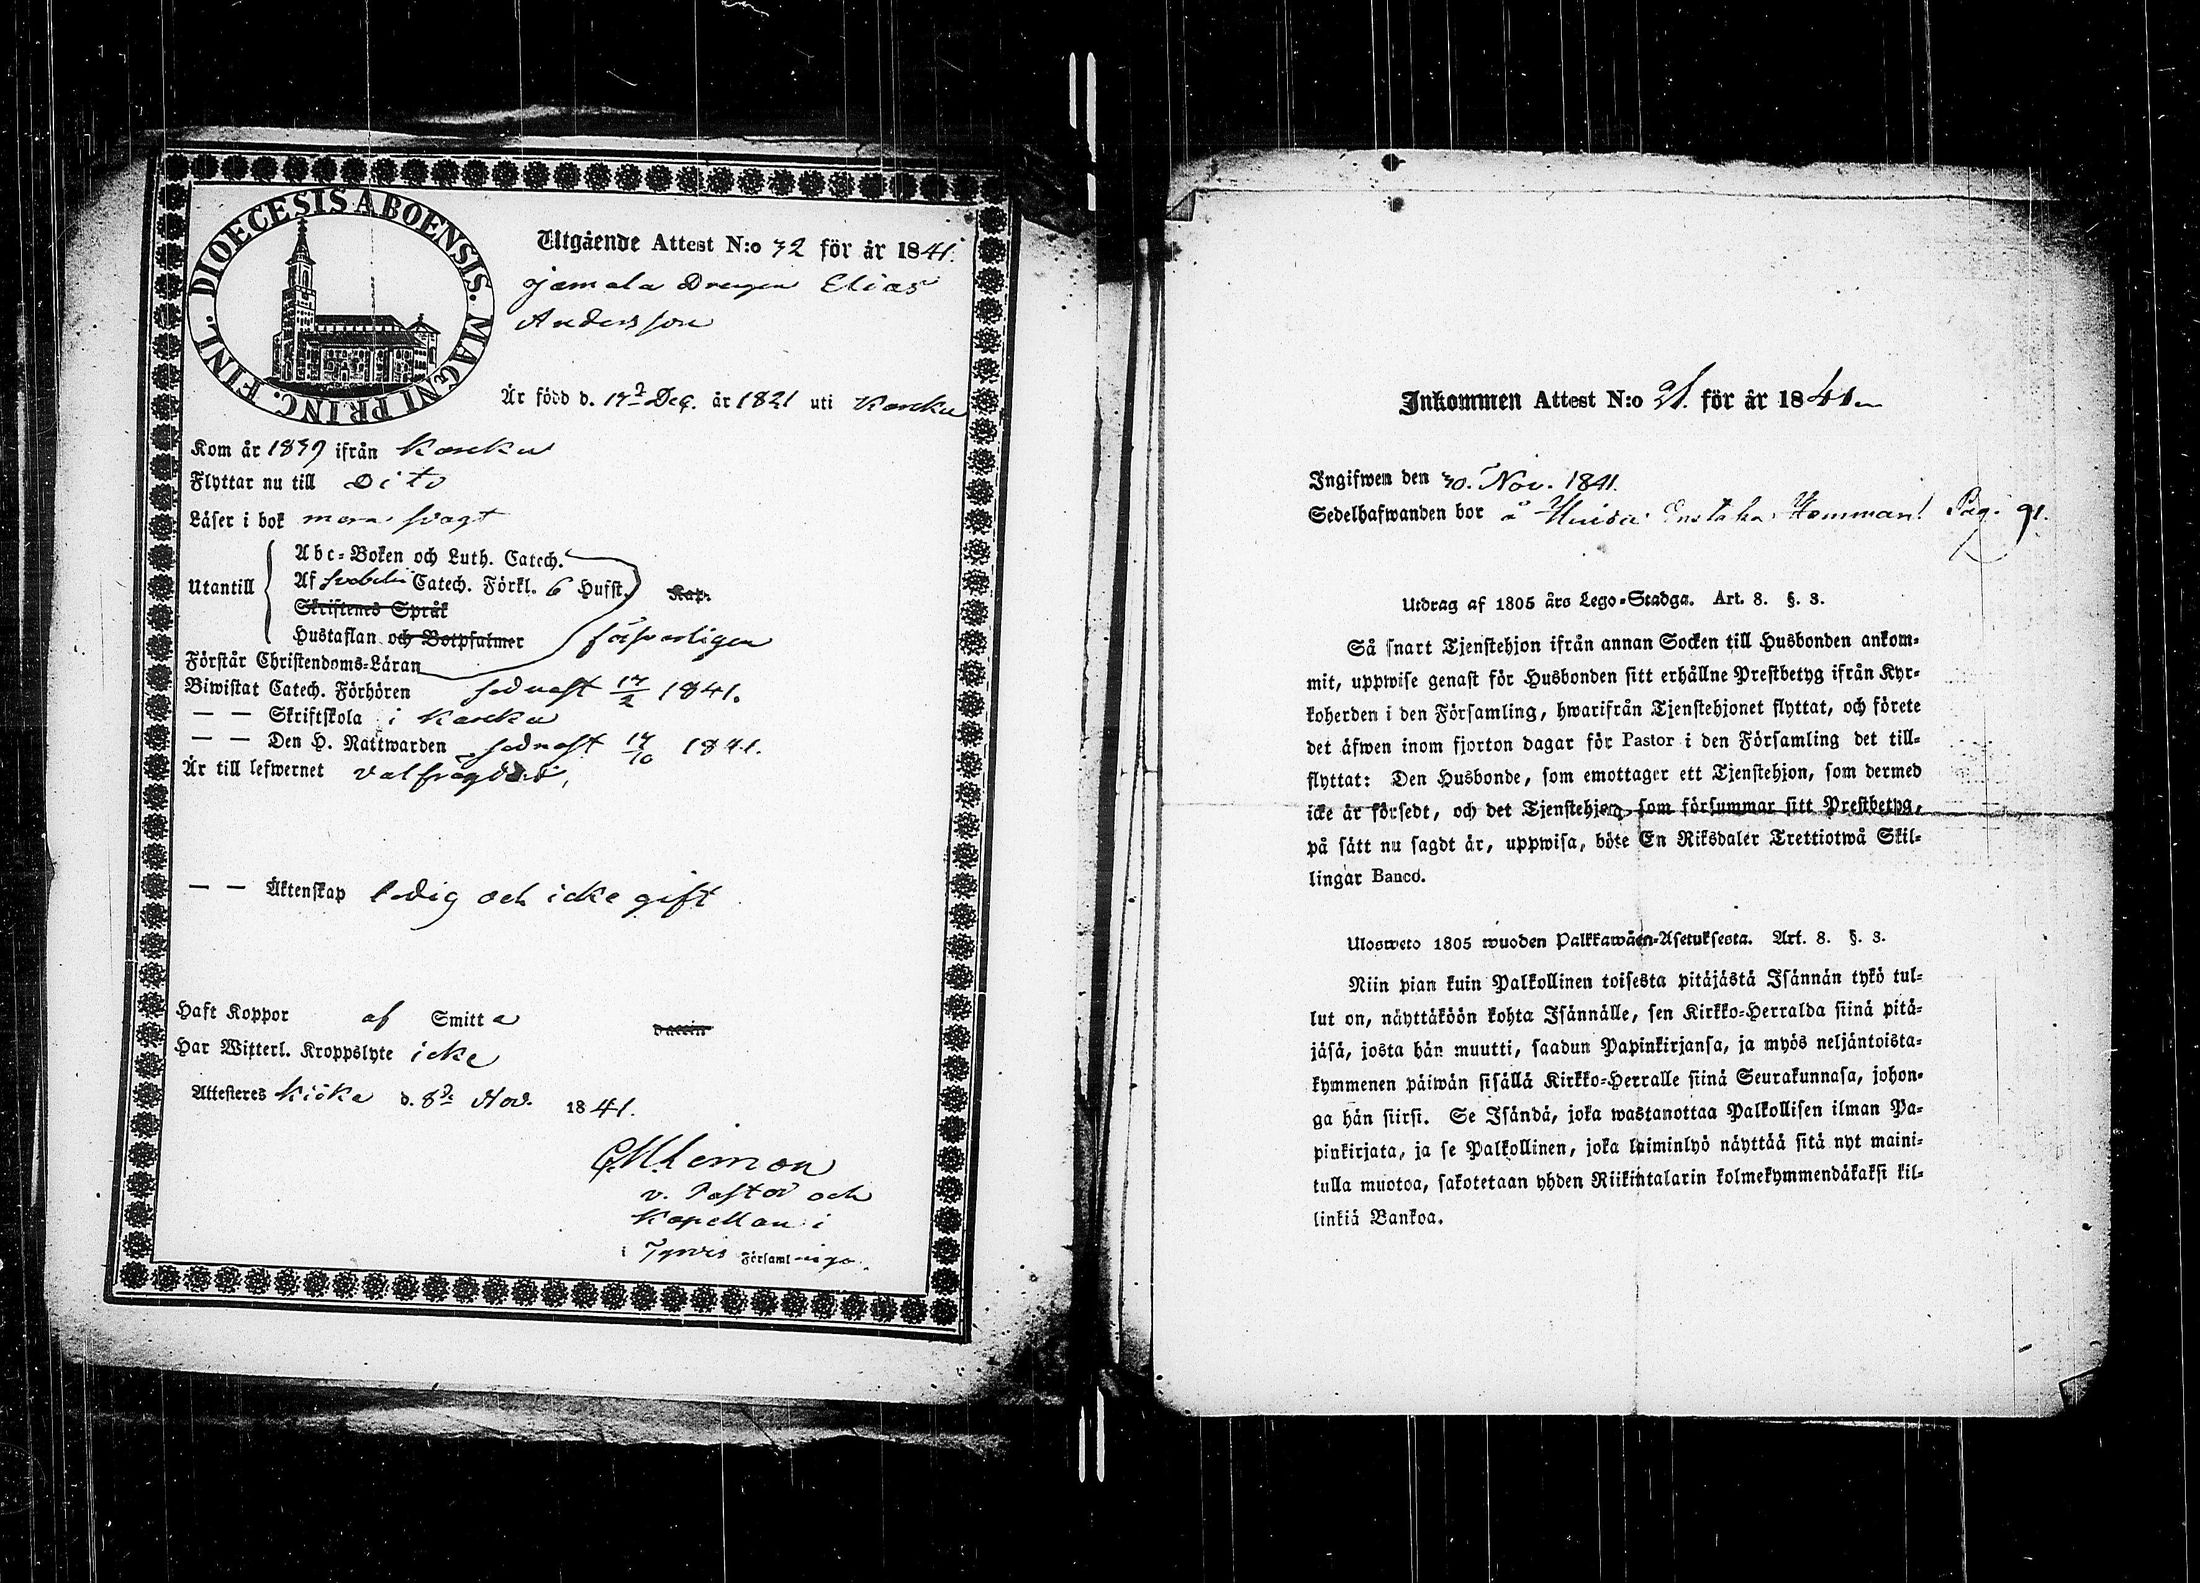 DIOECESIS ABOENSIS. MAGNI PRINC. FINL.
Utgående Attest N:o 32 för år 1841.
gamala Drengen Elias
Andersson
Är född d. 17de Dec. år 1821 uti Karcku
Kom år 1839 ifrån Karcku
Flyttar nu till Dito
Läser i bok svagt
Utantill
Abc-Boken och Luth. Catech.
Af Svebelii Catech. Förkl. 6 Hufst. Kap.
Skriftenes Språk
Hustaflan och Botpsalmer försvarligen
Förstår Christendoms-Läran
Biwistat Catech. Förhören sednast 17/2 1841.
— — Skriftskola i Karcku
— — Den H. Nattwarden sednast 17/10 1841.
Är till lefwernet välfrägdad,
— — Äktenskap ledig och icke gift
Haft Koppor af Smitta vaccin
Har Witterl. Kroppslyte icke
Attesteres Kiika d. 8de Nov. 1841.
v. Pastor och
Kapellan i
i Tyrvis Församlinga.
Inkommen Attest N:o 21. för år 1841
Ingifwen den 30. Nov. 1841.
Sedelhafwanden bor å Enstaka Hemman! Pag. 91.
Utdrag af 1805 års Lego-Stadga. Art. 8. §. 3.
Så snart Tjenstehjon ifrån annan Socken till Husbonden ankom-
mit, uppwise genast för Husbonden sitt erhållne Prestbetyg ifrån Kyr-
koherden i den Församling, hwarifrån Tjenstehjonet flyttat, och förete
det äfwen inom fjorton dagar för Pastor i den Församling det till-
flyttat: Den Husbonde, som emottager ett Tjenstehjon, som dermed
icke är försedt, och det Tjenstehjon, som försummar sitt Prestbetyg,
på sätt nu sagdt är, uppwisa, böte En Riksdaler Trettiotwå Skil-
lingar Banco.
Ulosweto 1805 wuoden Palkkawäen-Asetuksesta. Art. 8. §. 3.
Niin pian kuin Palkollinen toisesta pitäjästä Isännän tykö tul-
lut on, näyttäköön kohta Isännälle, sen Kirkko-Herralda siinä pitä-
jäsä, josta hän muutti, saadun Papinkirjansa, ja myös neljäntoista-
kymmenen päiwän sisällä Kirkko-Herralle siinä Seurakunnasa, johon-
ga hän siirsi. Se Isändä, joka wastanottaa Palkollisen ilman Pa-
pinkirjata, ja se Palkollinen, joka laiminlyö näyttää sitä nyt maini-
tulla muotoa, sakotetaan yhden Riikintalarin kolmekymmendäkaksi kil-
linkiä Bankoa.